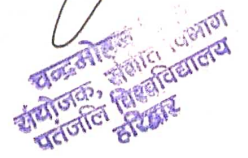 चन्द्रमोहन
संयोजक, संगीत विभाग
पतंजलि विश्वविद्यालय
हरिद्वार